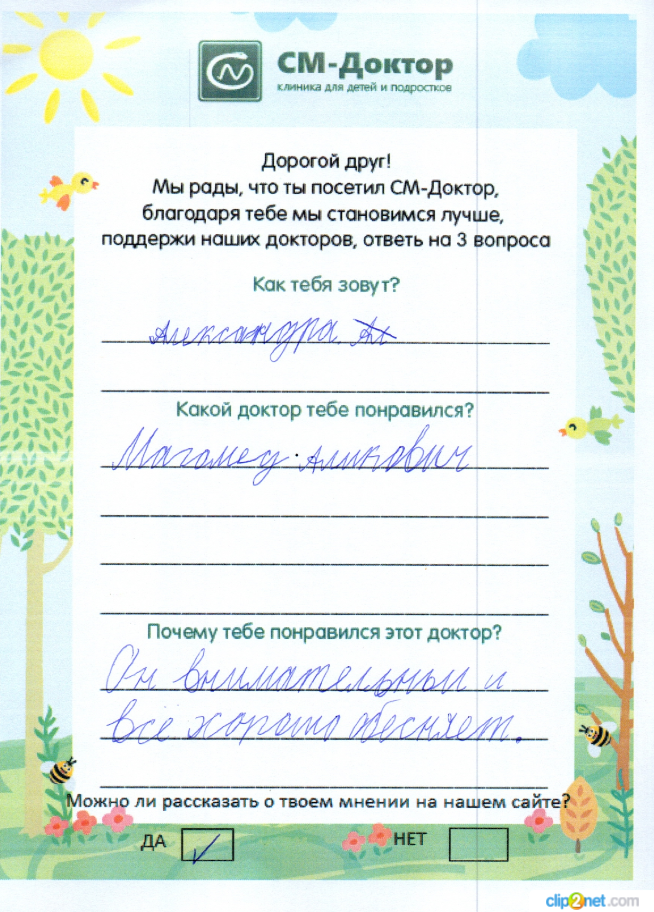 СМ-Доктор
клиника для детей и подростков
Дорогой друг!
Мы рады, что ты посетил СМ-Доктор,
благодаря тебе мы становимся лучше,
поддержи наших докторов, ответь на 3 вопроса
Как тебя зовут?
Александра Ал
Какой доктор тебе понравился?
Магомед Аликович
Почему тебе понравился этот доктор?
Он внимательный и
всё хорошо обесняет.
Можно ли рассказать о твоем мнении на нашем сайте?
ДА НЕТ
clip2net.com